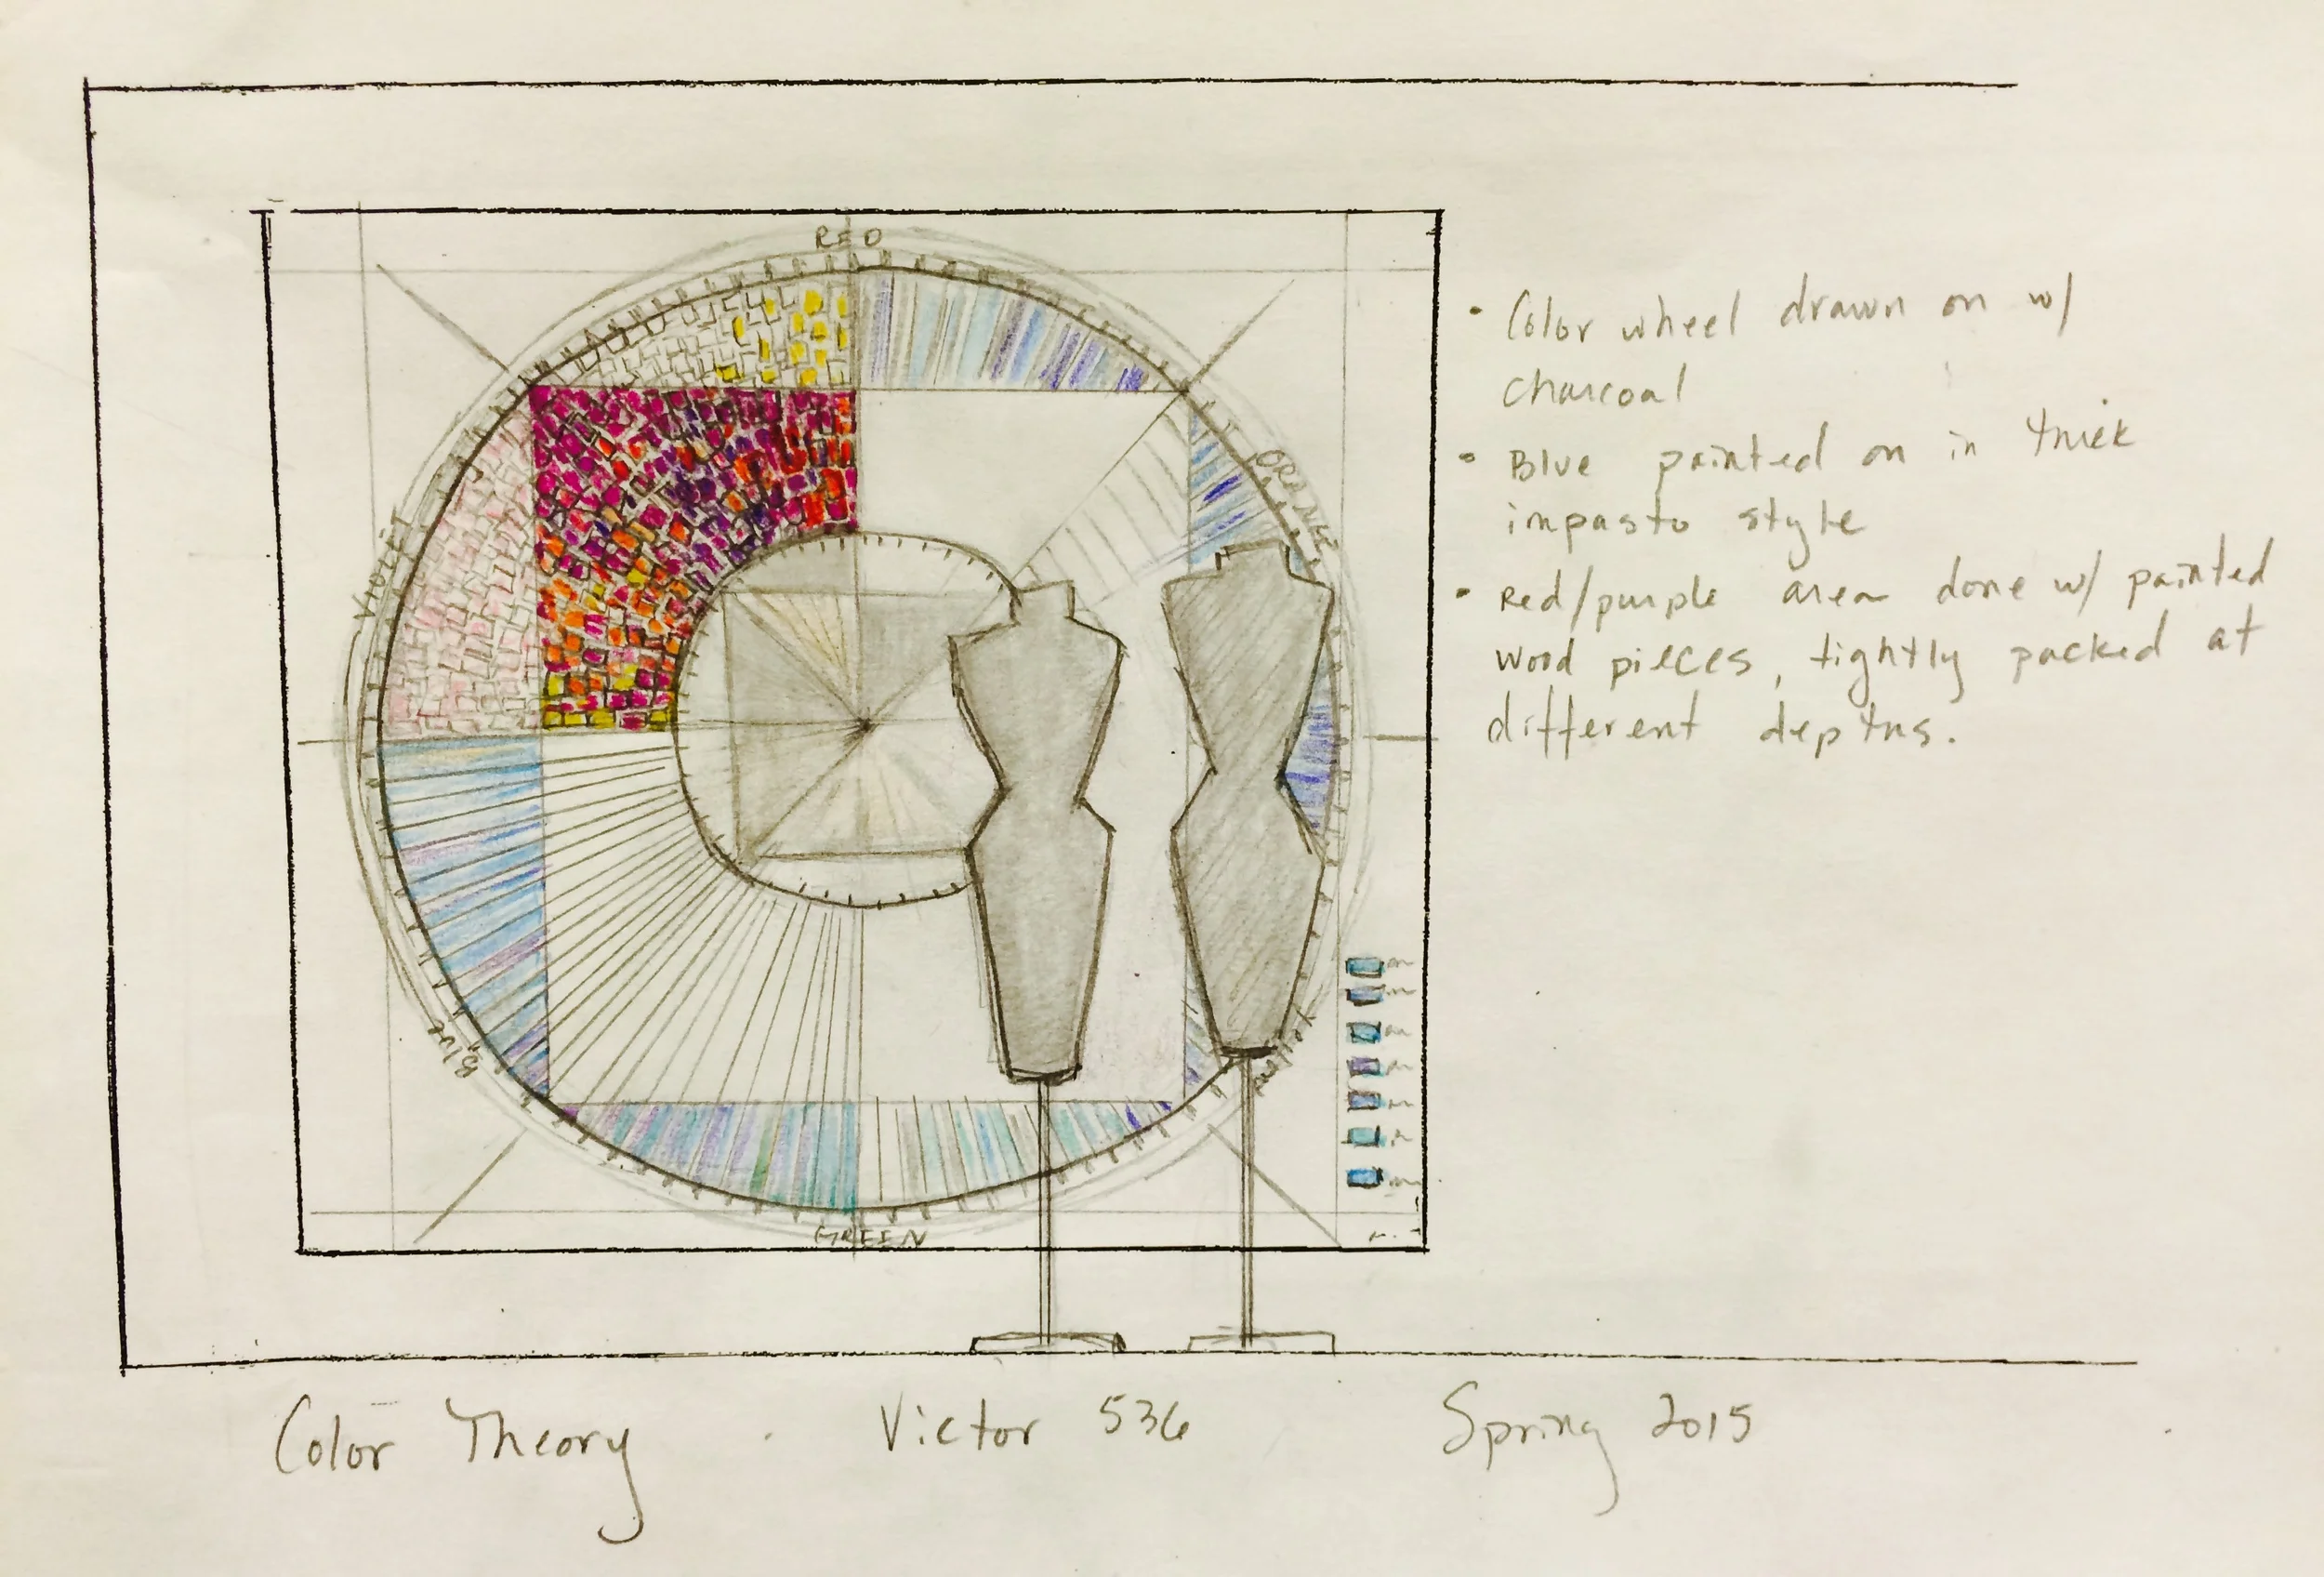 RED
ORANGE
VIOLET
Blue
yellow
GREEN
• Color wheel drawn on w/
charcoal
• Blue painted on in thick
impasto style
• Red/purple area done w/ painted
wood pieces, tightly packed at
different depths.
Color Theory . Victor 536 Spring 2015